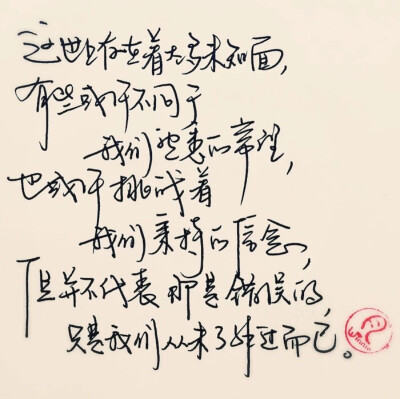 这世上存在着太多未知面，
有些或许不同于
我们熟悉的常理，
也或许挑战着
我们秉持的信念，
但并不代表那是错误的，
只是我们从未了解过而已。